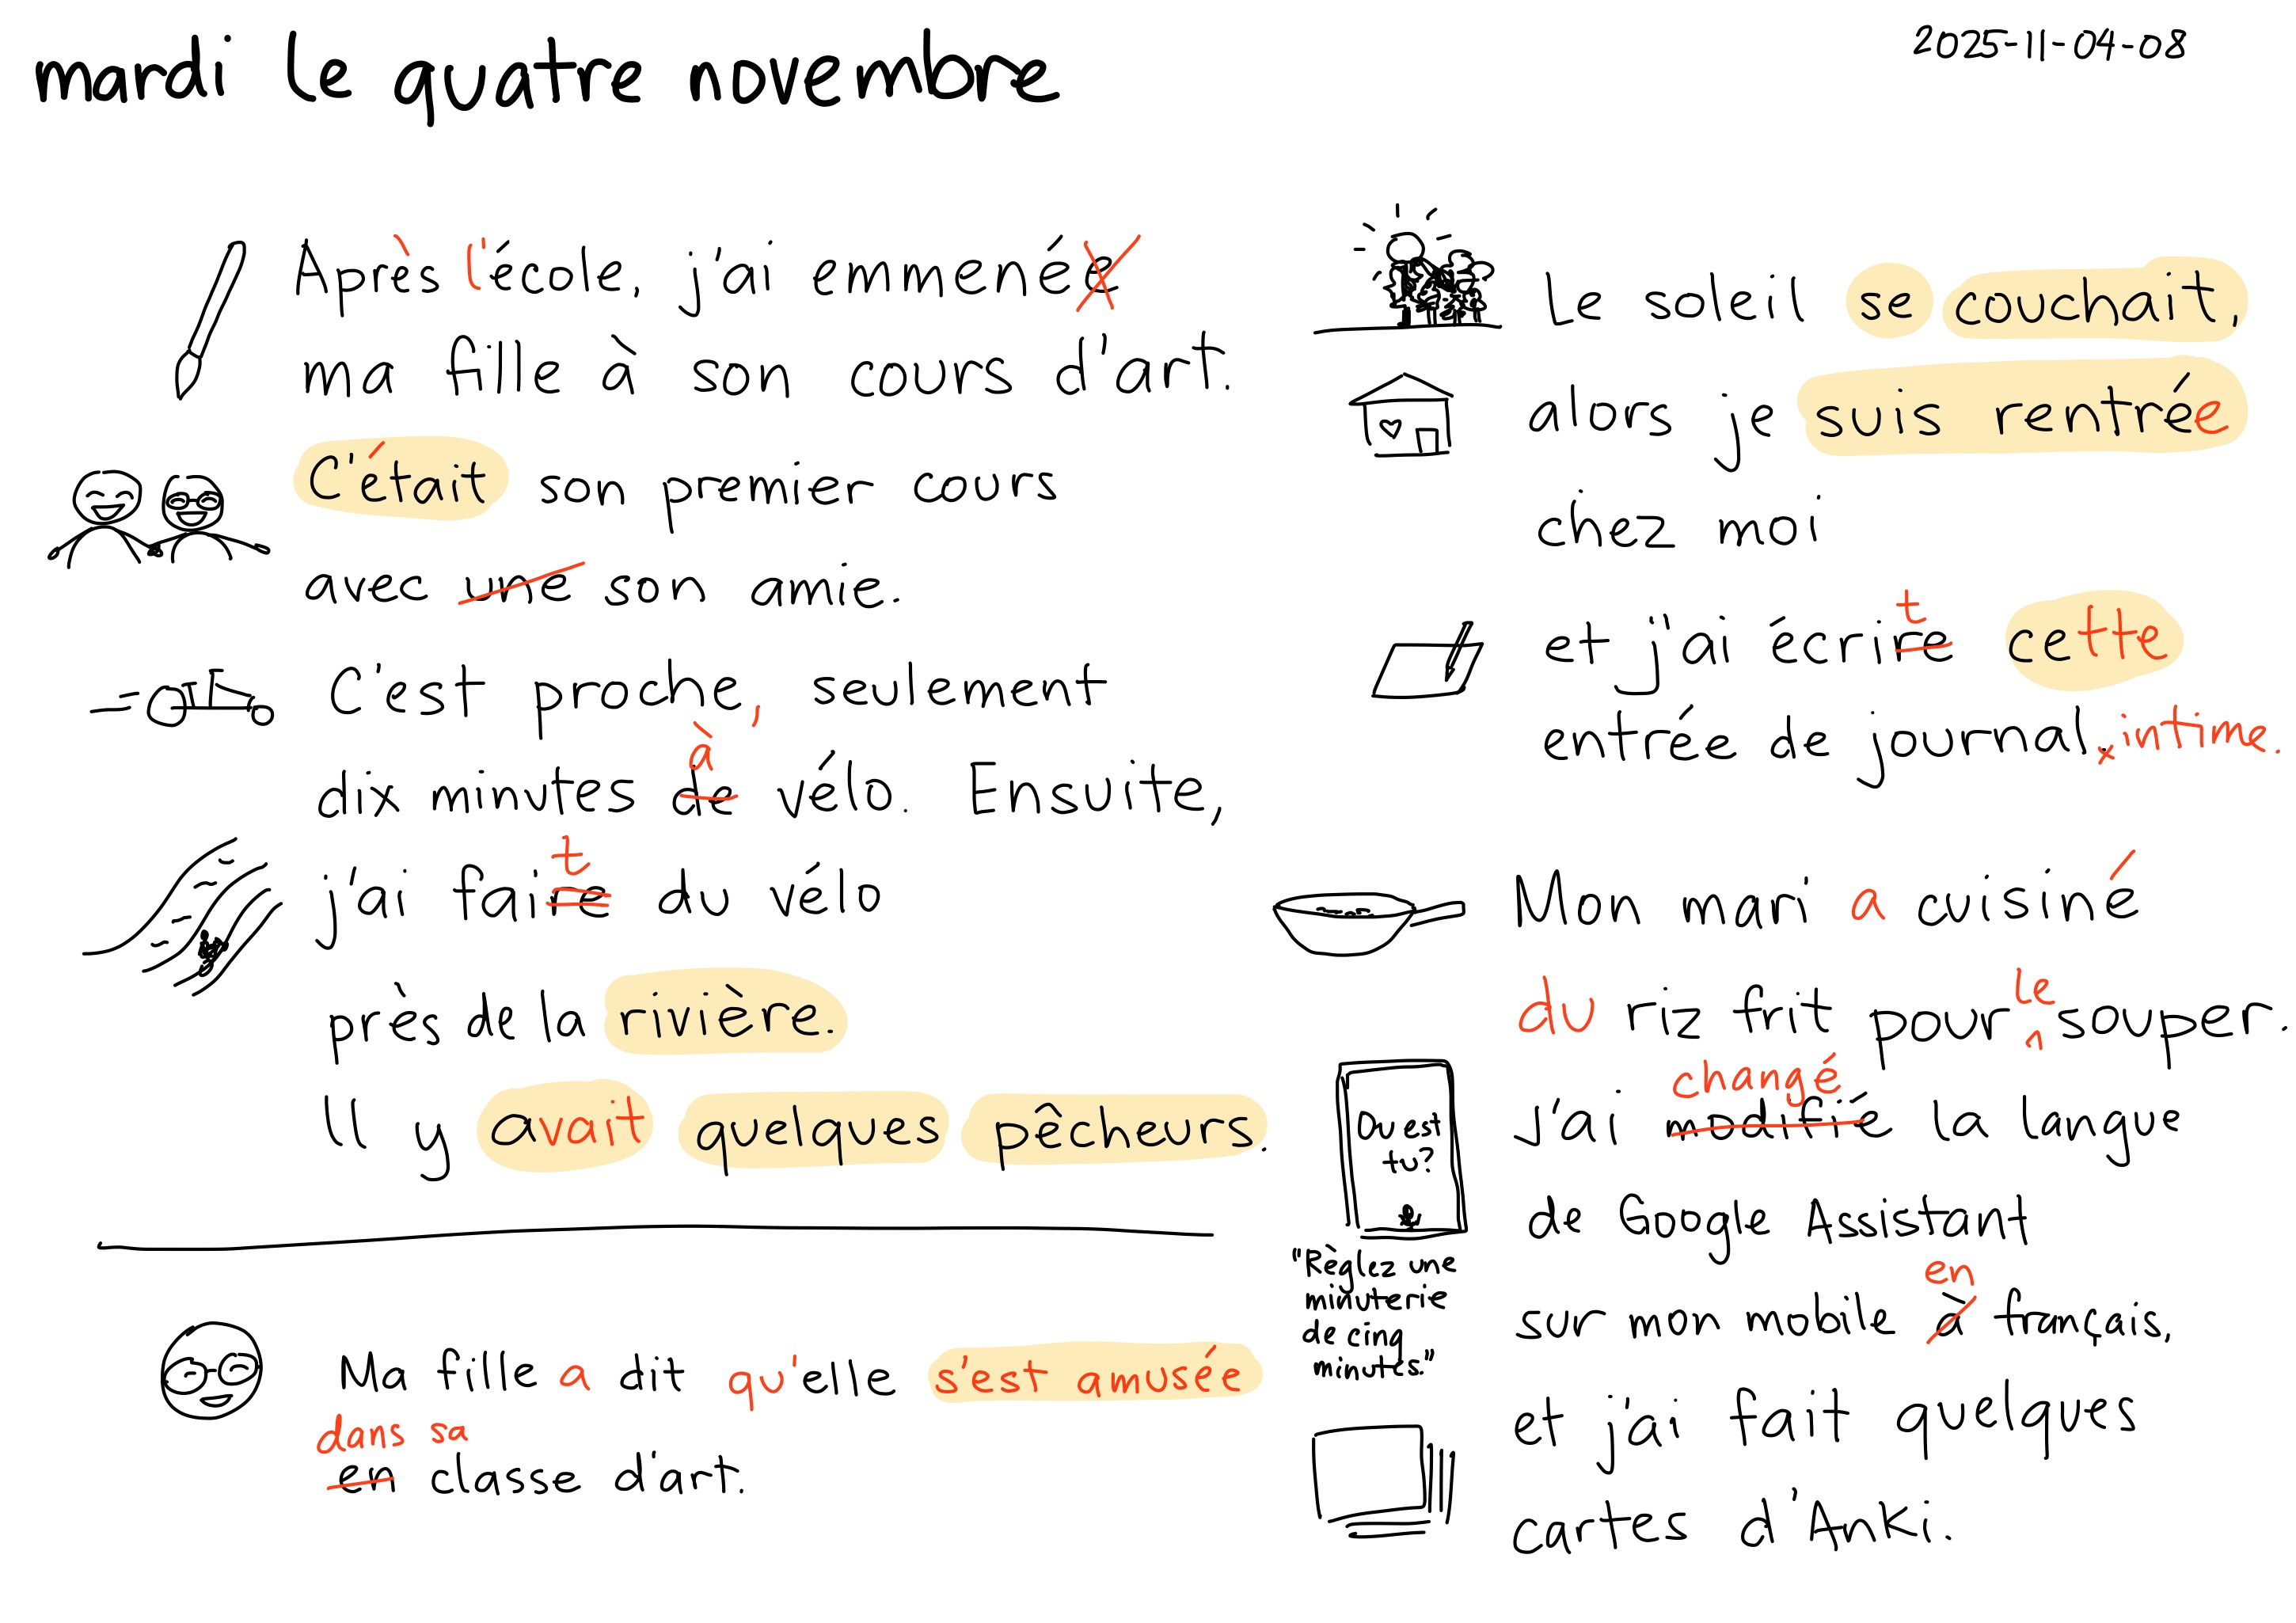 mardi le quatre novembre
2025-11-04-08
Après l'école, j'ai emmenée
ma fille à son cours d'art.
C'était son premier cours
avec une son amie.
C'est proche, seulement
à
dix minutes de vélo. Ensuite,
t
j'ai faire du vélo
près de la rivière.
Il y avait quelques pêcheurs.
Ma fille a dit qu'elle s'est amusée
dans sa
en classe d'art.
Le soleil se couchait,
alors je suis rentrée
chez moi
t
et j'ai écrire cette
entrée de journal. intime.
Mon mari a cuisiné
le
du riz frit pour souper.
changé
J'ai modifié la langue
de Google Assistant
en
sur mon mobile à français,
et j'ai fait quelques
cartes d'Anki.
Où est
tu?
"Règlez une
minuterie
de cinq
minutes."